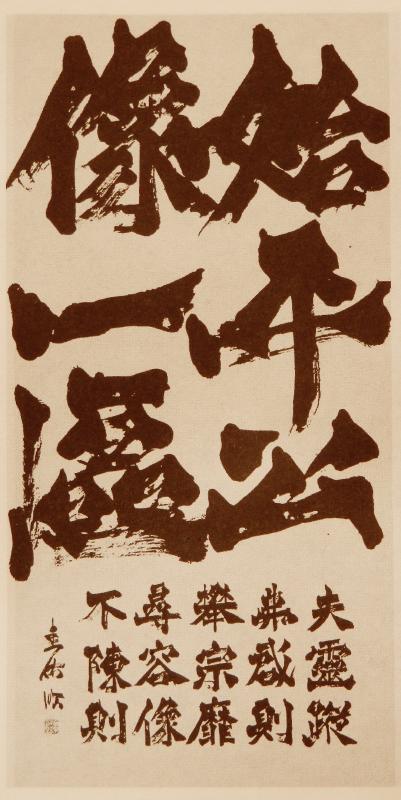 始平公
像一區
夫靈蹤
弗啟則
攀宗靡
尋容像
不陳則